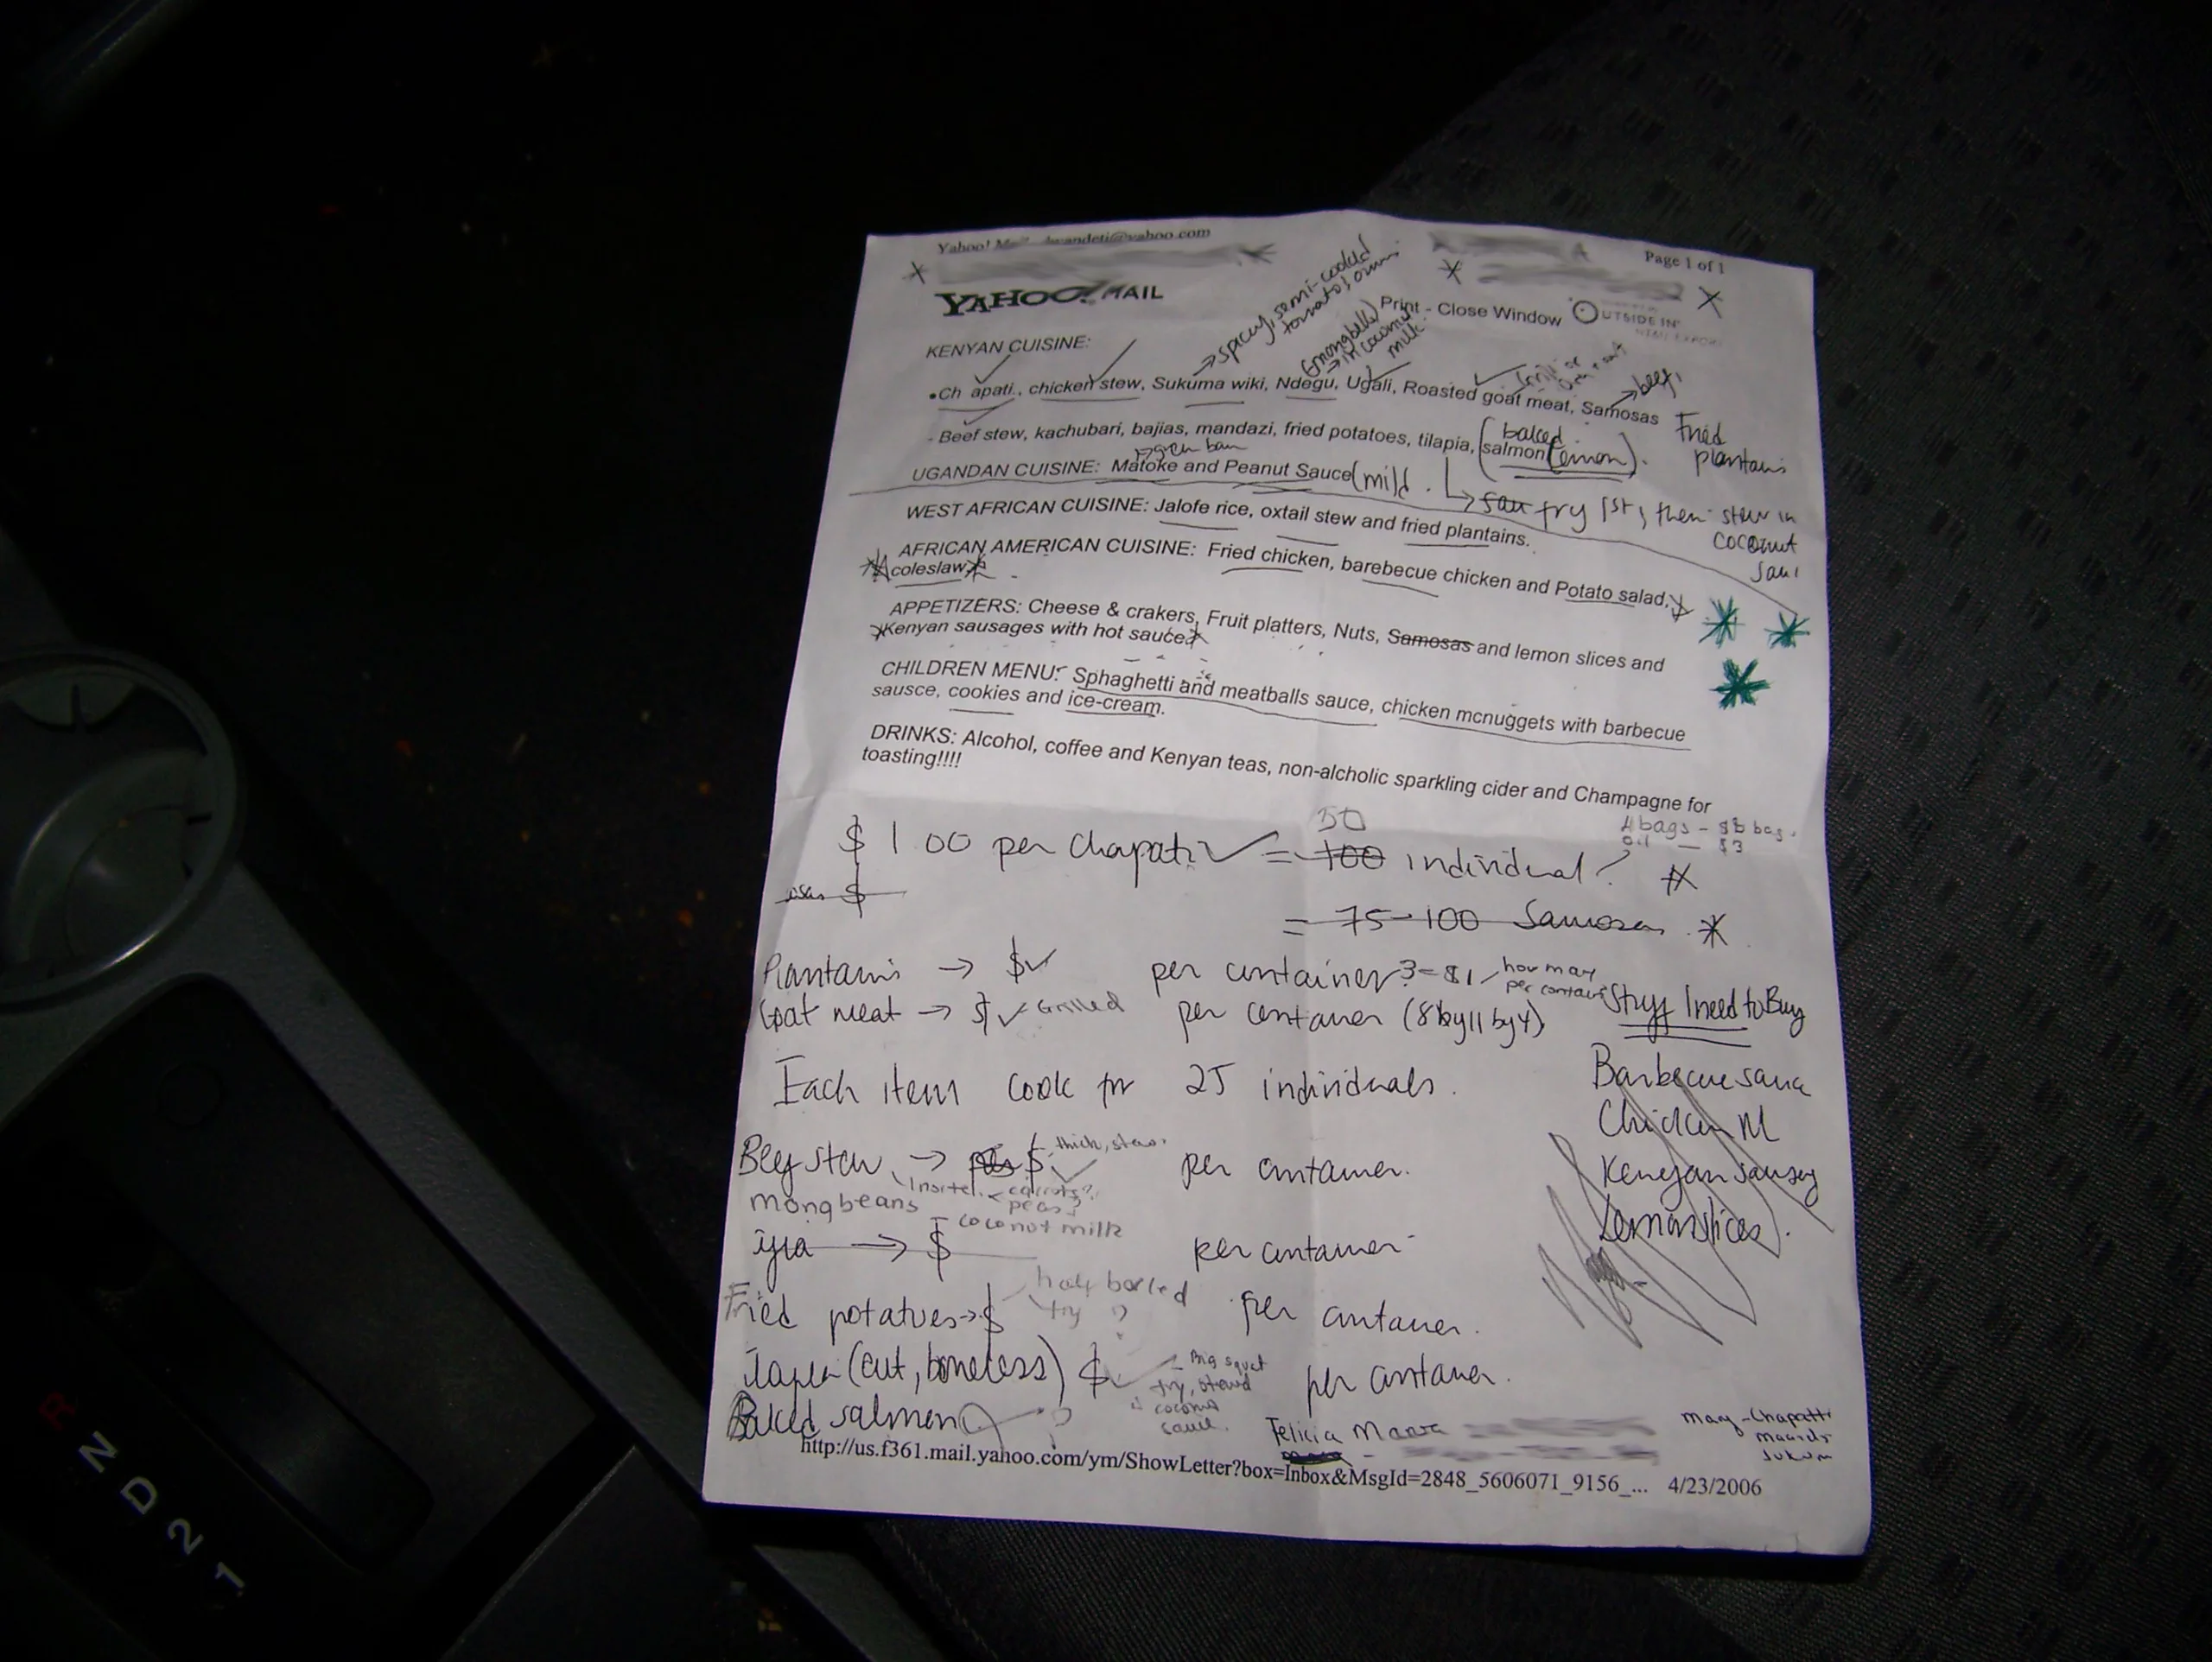 Yahoo!
Page 1 of 1
YAHOO! MAIL
Print - Close Window
OUTSIDE IN
spicy, semi-cooked
KENYAN CUISINE:
milk
•Ch apati., chicken stew, Sukuma wiki, Ndegu, Ugali, Roasted goat meat, Samosas
beef
Fried
plantains
- Beef stew, kachubari, bajias, mandazi, fried potatoes, tilapia, (baked
salmon (lemon).
UGANDAN CUISINE: Matoke and Peanut Sauce (mild.
fry 1st, then stew in
coconut
WEST AFRICAN CUISINE: Jalofe rice, oxtail stew and fried plantains.
AFRICAN AMERICAN CUISINE: Fried chicken, barebecue chicken and Potato salad,
coleslaw
APPETIZERS: Cheese & crakers, Fruit platters, Nuts, Samosas and lemon slices and
Kenyan sausages with hot sauce
CHILDREN MENU: Sphaghetti and meatballs sauce, chicken mcnuggets with barbecue
sausce, cookies and ice-cream.
DRINKS: Alcohol, coffee and Kenyan teas, non-alcholic sparkling cider and Champagne for
toasting!!!!
50
4 bags
$3
$ 1.00 per chapati = 100 individual?
$
= 75-100 Samosas
Plantains → $ per container? 3 = $1
how many
per container
Goat meat → $ Grilled per container (8 by 11 by 4)
Stuff I need to Buy
Each item cook for 25 individuals.
Barbecue sauce
Chicken M
Kenyan sausag
Lemon slices.
Beef stew → $ thick, stew. per container.
carrots?
peas?
mongbeans
coconut milk
→ $ per container
Fried potatoes → $ half boiled per container.
fry ?
(cut, boneless) $ per container.
fry, stewed
coconut
Baked salmon ?
Felicia
Chapatti
http://us.f361.mail.yahoo.com/ym/ShowLetter?box=Inbox&MsgId=2848_5606071_9156_... 4/23/2006
R
N
D
2
1